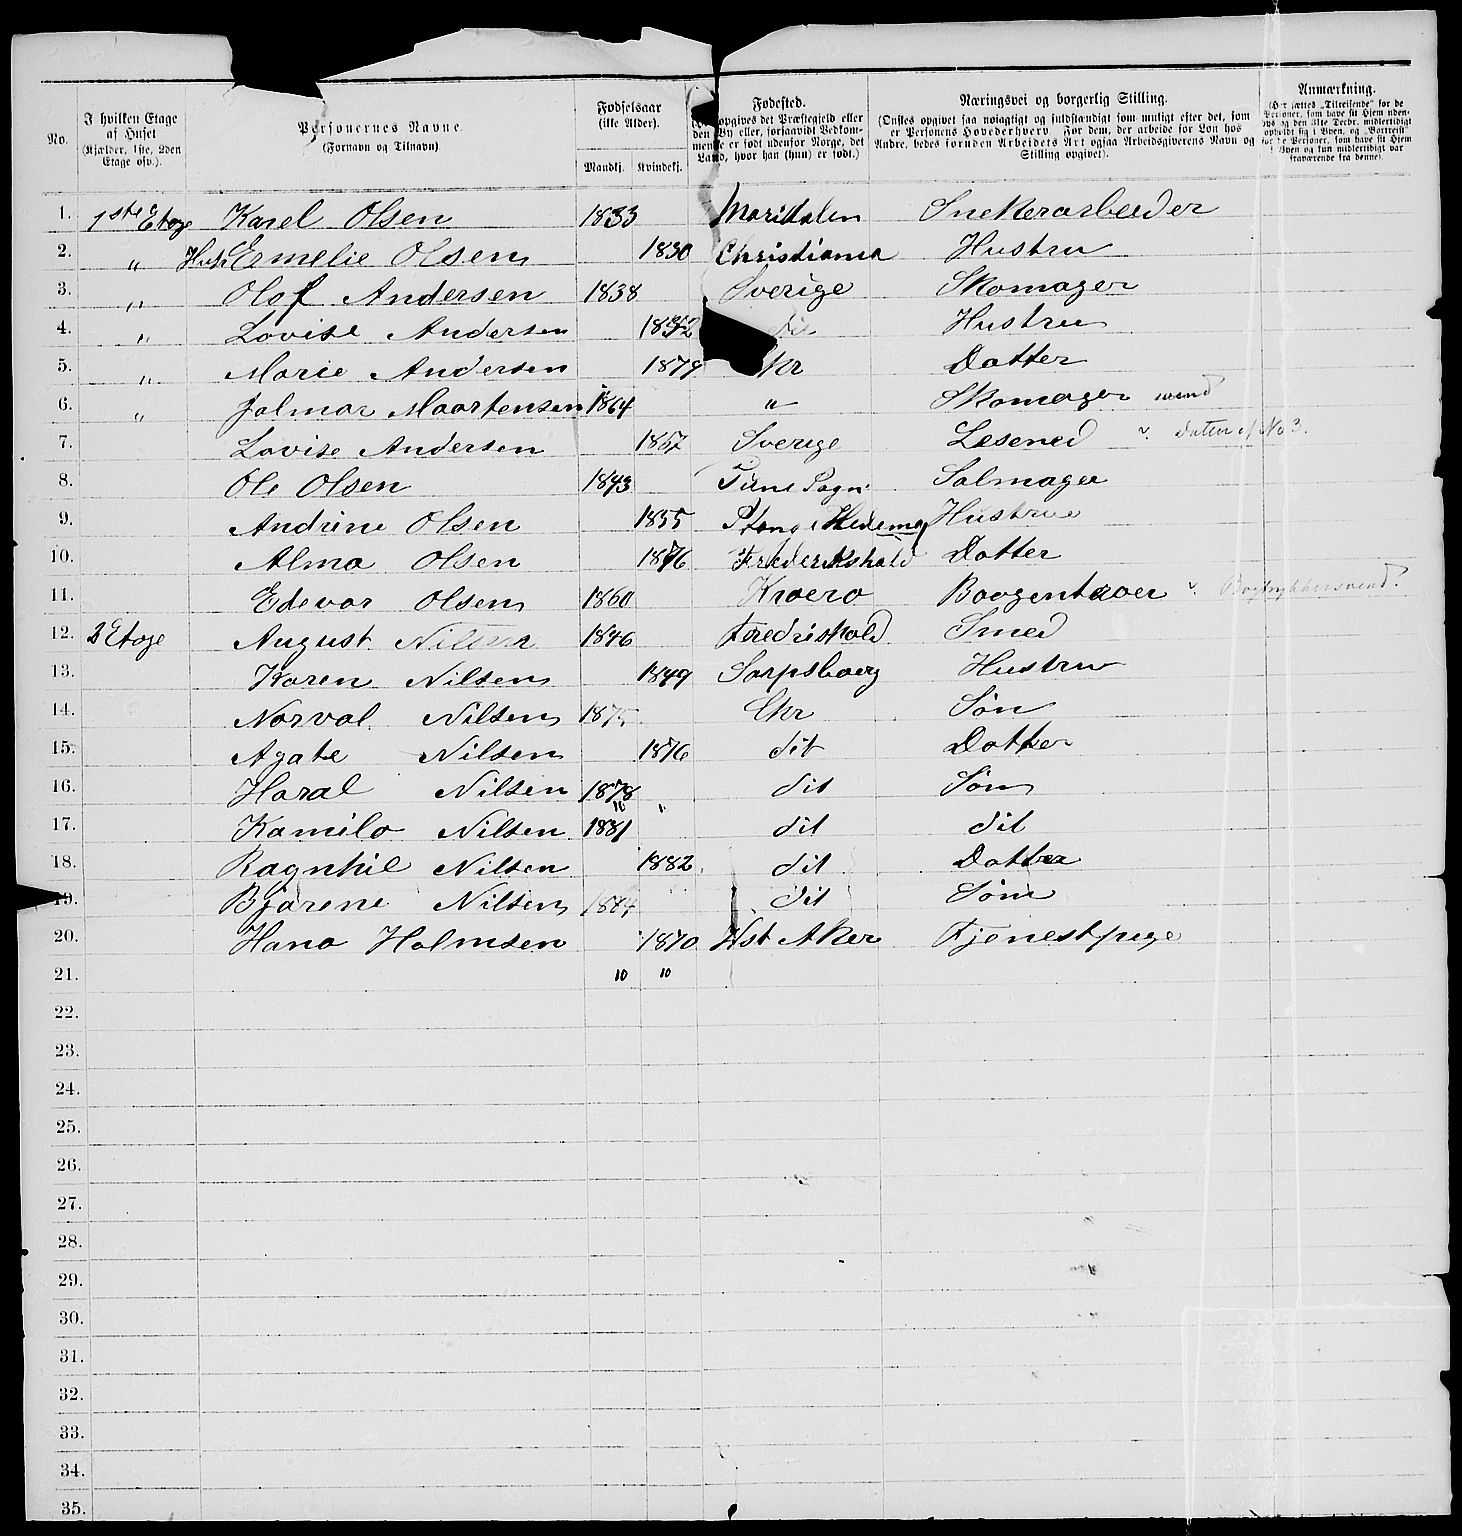 No. | I hvilken Etage af Huset (Kjælder, 1ste, 2den Etage osv.). | Personernes Navne. (Fornavn og Tilnavn) | Fødselsaar (ikke Alder). Mandkj. Kvindekj. | Fødested. opgives det Præstegjeld eller den By eller, forsaavidt Vedkommende er født udenfor Norge, det Land, hvor han (hun) er født.) | Næringsvei og borgerlig Stilling. (Ønskes opgivet saa nøiagtigt og fuldstændigt som muligt efter det, som er Personens Hovederhverv. For dem, der arbeide for Løn hos Andre, bedes foruden Arbeidets Art ogsaa Arbeidsgiverens Navn og Stilling opgivet). | Anmærkning. (Her sættes „Tilreisende" for de Personer, som have sit Hjem udenbys og den 31te Decbr. midlertidigt opholdt sig i Byen, og „Bortreist" for de Personer, som have sit Hjem i Byen og kun midlertidigt var fraværende fra denne).
1. 1ste Etage Karel Olsen 1833 Maridalen Snekerarbeider
2. " Hust Ermelie Olsen 1830 Christiania Hustru
3. " Olof Andersen 1838 Sverige Skomager
4. " Lovise Andersen 1832 dit Hustru
5. " Marie Andersen 1879 Kr Datter
6. " Jalmar Maartensen 1864 " Skomager svend
7. Lovise Andersen 1857 Sverige Lesened Datter af No 3.
8. Ole Olsen 1843 Tune Sogn Salmager
9. Andrine Olsen 1855 Stange Hedema Hustrue
10. Alma Olsen 1876 Frederikshald Datter
11. Edevar Olsen 1860 Kraerø Boogentrøer Bogtrykkersvend?
12. 2 Etage August Nilsen 1846 Fredriskald Smed
13. Karen Nilsen 1849 Sarpsboerg Hustru
14. Norval Nilsen 1875 Chr Søn
15. Agate Nilsen 1876 dit Datter
16. Haral Nilsen 1878 dit Søn
10 "
17. Kamilo Nilsen 1881 dit dit
18. Ragnhil Nilsen 1882 dit Datter
19. Bjarene Nilsen 1884 dit Søn
20. Hana Holmsen 1870 Vst Aker Tjenestpige
21. 10 10
22.
23.
24.
25.
26.
27.
28.
29.
30.
31.
32.
33.
34.
35.